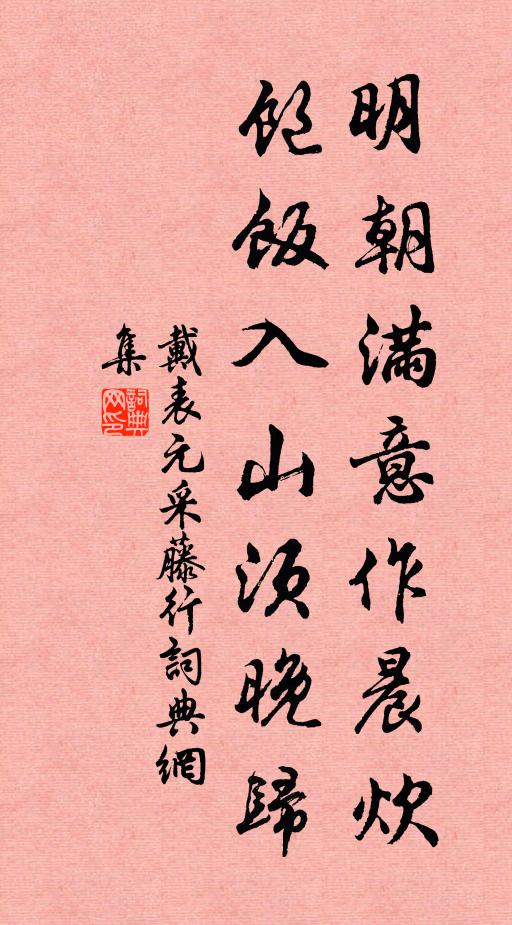 明朝滿意作晨炊
飽飯入山須晚歸
戴表元采藤行詞典網
集
詞典網印